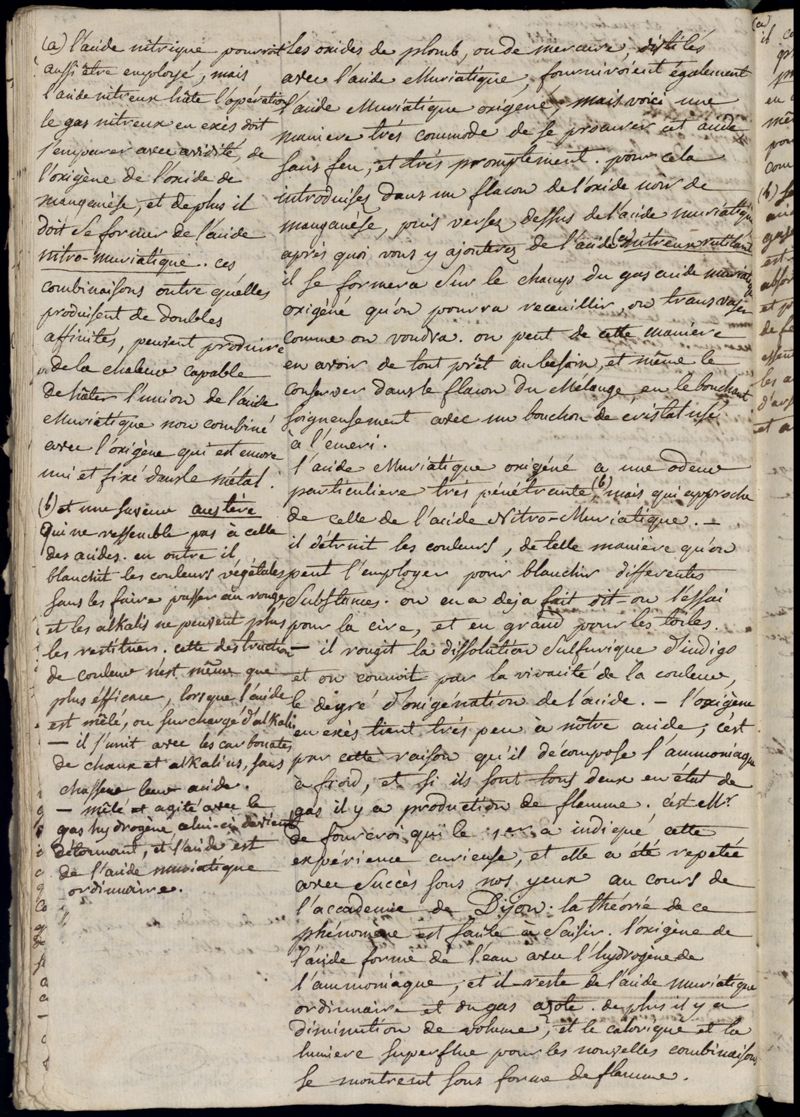 (a) l'acide nitrique pourroit
aussi être employé, mais
l'acide nitreux hâte l'opération
le gas nitreux en excés doit
s'emparer avec avidité, de
l'oxigène de l'oxide de
manganèse, et de plus il
doit se former de l'acide
nitro-muriatique. ces
combinaisons outre qu'elles
produisent de doubles
affinités, peuvent produire
de la chaleur capable
de hâter l'union de l'acide
Muriatique non combiné
avec l'oxigène qui est encore
uni et fixé dans le métal.
(b) et une saveur austère
qui ne ressemble pas à celle
des acides. en outre il
blanchit les couleurs végétales
sans les faire passer au rouge
et les alkalis ne peuvent plus
les restituer. cette destruction
de couleur n'est même que
plus efficace, lorsque l'acide
est mêlé, ou surchargé d'alkali
— il s'unit avec les carbonates
de chaux et alkalins, sans
chasser leur acide.
— mêlé et agité avec le
gas hydrogène celui-ci devient
détonnant, et l'acide est
de l'acide muriatique
ordinaire.
les oxides de plomb, ou de mercure, distilés
avec l'acide Muriatique, fourniroient également
l'acide Muriatique oxigené. mais voici une
maniere trés commode de se procurer cet acide
sans feu, et trés promptement. pour cela
introduisez dans un flacon de l'oxide noir de
manganése, puis versez dessus de l'acide muriatique
après quoi vous y ajouterez de l'acide (a) nitreux rutilant
il se formera sur le champ du gas acide muriatique
oxigéné qu'on pourra receuillir, ou transvaser
comme on voudra. on peut de cette maniere
en avoir de tout prêt au besoin, et même le
conserver dans le flacon du Mélange, en le bouchant
soigneusement avec un bouchon de cristal usé
à l'émeri.
l'acide Muriatique oxigéné a une odeur
particuliere trés pénétrante (b), mais qui approche
de celle de l'acide Nitro-Muriatique. —
il détruit les couleurs, de telle manière qu'on
peut l'employer pour blanchir differentes
substances. on en a deja fait dit on l'essai
pour la cire, et en grand pour les toiles.
— il rougit la dissolution sulfurique d'indigo
et on connoit par la vivacité de la couleur,
le dégré d'oxigénation de l'acide. — l'oxigène
en excès tient trés peu à nôtre acide; c'est
par cette raison qu'il décompose l'ammoniaque
à froid, et si ils sont tous deux en état de
gas il y a production de flamme. c'est Mr.
de fourcroi qui le 1er. a indiqué cette
expérience curieuse, et elle a été repetée
avec succès sous nos yeux au cours de
l'accademie de Dijon. la théorie de ce
phénomène est facile à saisir. l'oxigène de
l'acide forme de l'eau avec l'hydrogène de
l'ammoniaque, et il reste de l'acide muriatique
ordinnaire et du gas azote. de plus il y a
diminution de volume, et le calorique et la
lumiere superflue pour les nouvelles combinaisons
se montrent sous forme de flamme.